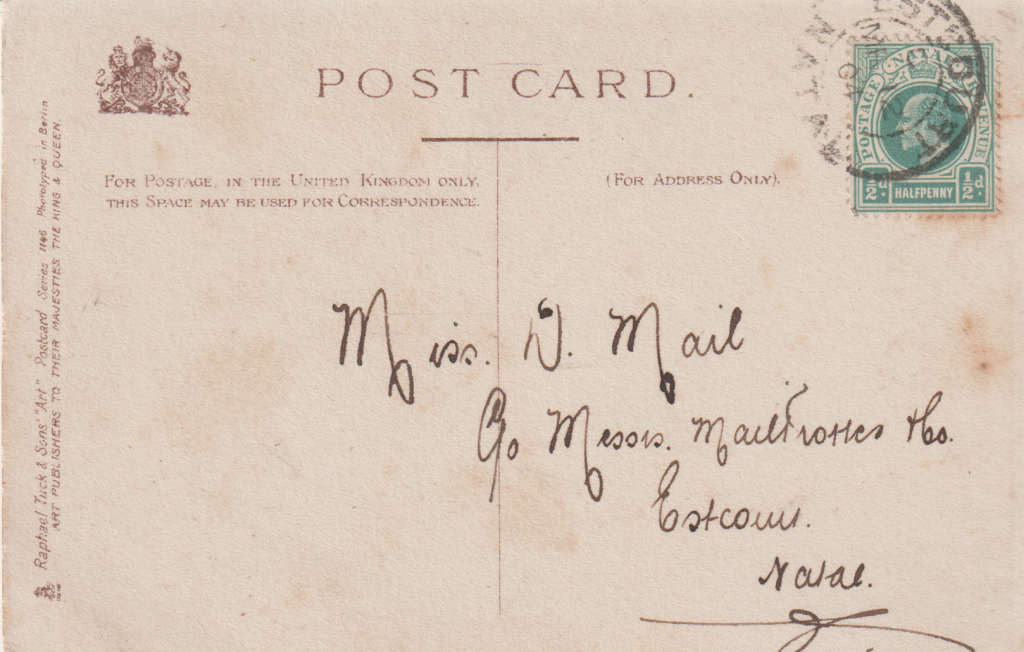 POST CARD.
FOR POSTAGE, IN THE UNITED KINGDOM ONLY,
THIS SPACE MAY BE USED FOR CORRESPONDENCE.
(FOR ADDRESS ONLY).
POSTAGE NATAL REVENUE
½d HALFPENNY ½d
NATAL
Miss. D. Mail
C/o Messrs.
Estcourt.
Natal.
Raphael Tuck & Sons' "Art" Postcard Series 1146 Phototyped in Berlin
ART PUBLISHERS TO THEIR MAJESTIES THE KING & QUEEN.